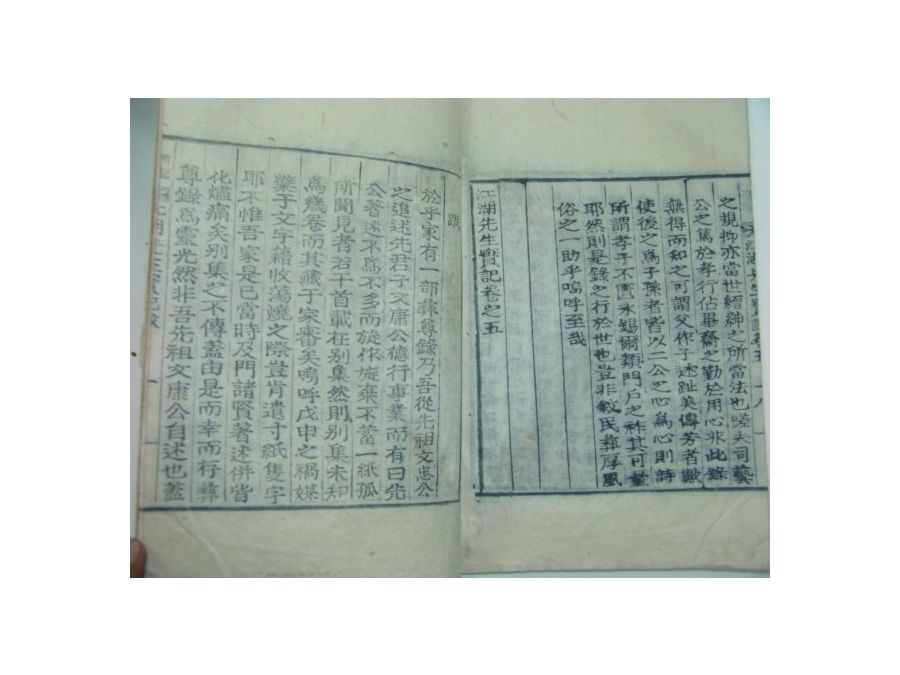 之規抑亦當世縉紳之所當法也嗟夫司藝
公之篤於孝行佔畢齋之勤於用心非此錄
無得而知之可謂父作子述趾美傳芳者歟
使後之爲子孫者皆以二公之心爲心則詩
所謂孝子不匱永錫爾類門戶之祚其可量
耶然則是錄之行於世也豈非敦民彝厚風
俗之一助乎嗚呼至哉
江湖先生實記卷之五
跋
於乎家有一部彝尊錄乃吾從先祖文忠公
之追述先君子文康公德行事業而有曰先
公著述不爲不多而旋作旋棄不蓄一紙孤
所聞見者若干首載在別集然則別集未知
爲幾卷而其藏于家審矣嗚呼戊申之禍媒
櫱于文字籍收蕩燒之際豈肯遺寸紙隻字
耶不惟吾家是已當時及門諸賢著述併皆
化燼痛矣別集之不傳蓋由是而幸而行彝
尊錄爲靈光然非吾先祖文康公自述也蓋